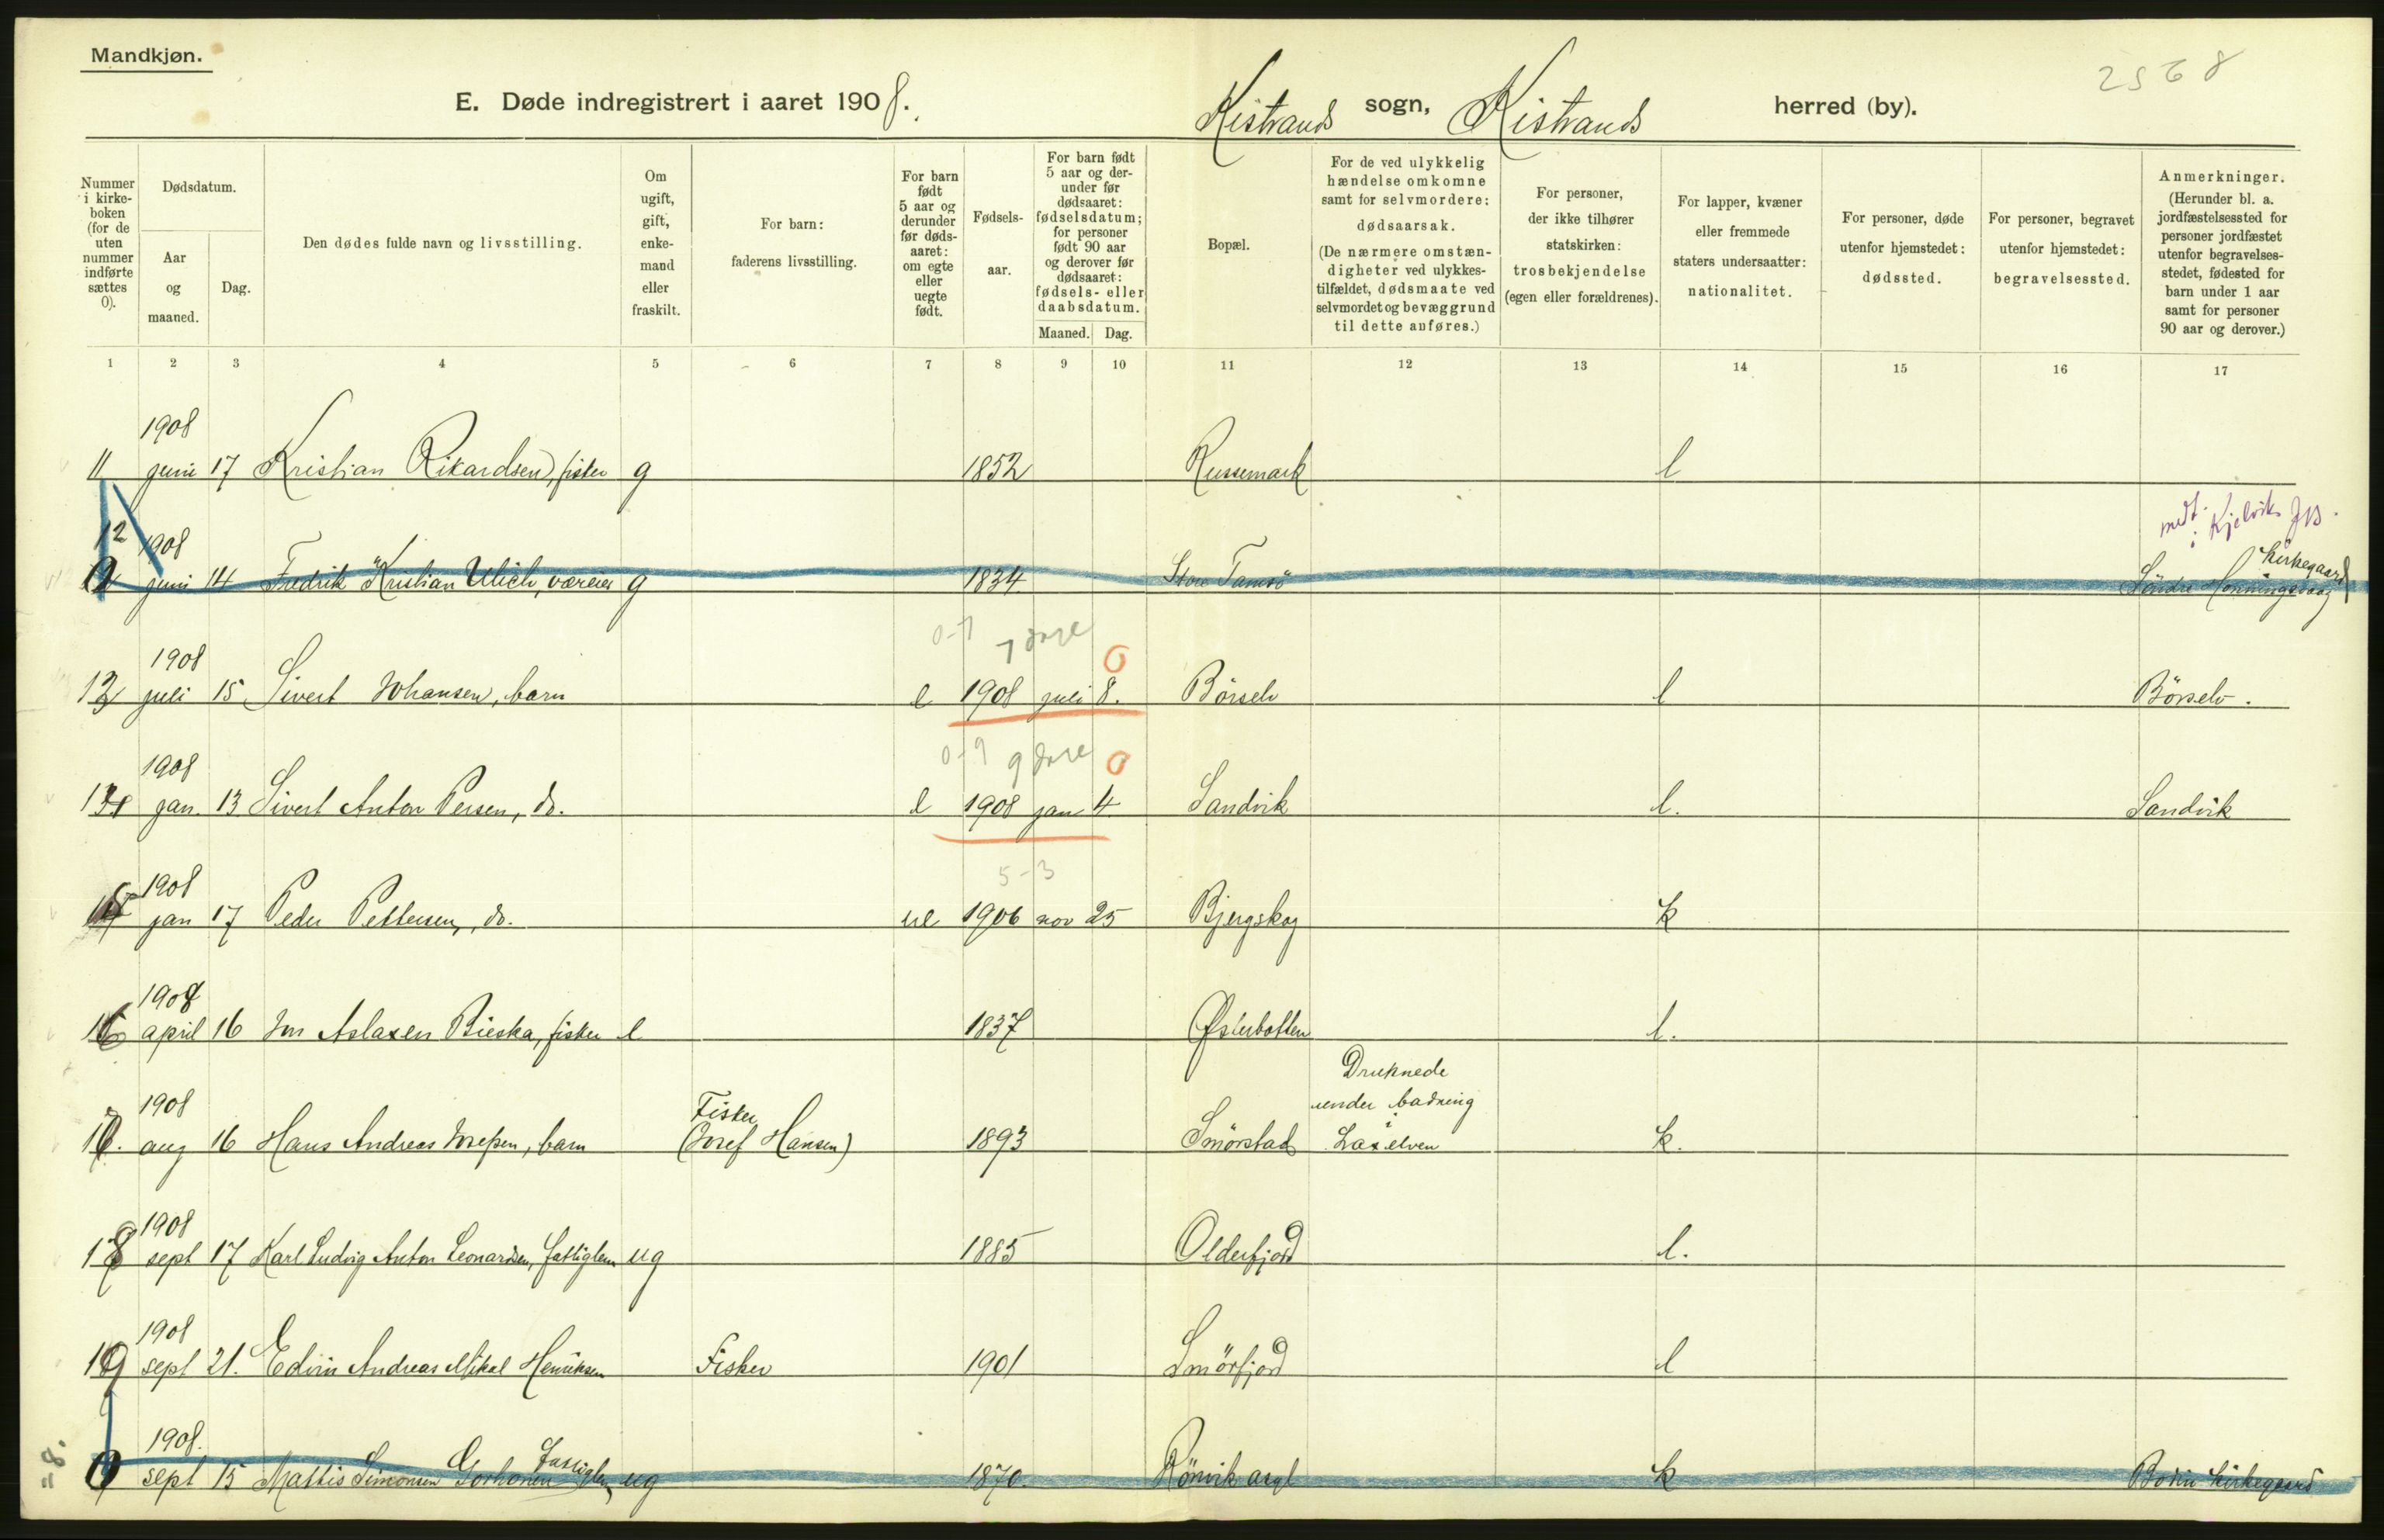 Mandkjøn.
2568
E. Døde indregistrert i aaret 1908.
Kistrands sogn, Kistrands herred (by).
Nummer i kirke-boken (for de uten nummer indførte sættes 0).
Dødsdatum.
Aar og maaned.
Dag.
Den dødes fulde navn og livsstilling.
Om ugift, gift, enke-mand eller fraskilt.
For barn: faderens livsstilling.
For barn født 5 aar og derunder før døds-aaret: om egte eller uegte født.
Fødsels-aar.
For barn født 5 aar og der-under før dødsaaret: fødselsdatum; for personer født 90 aar og derover før dødsaaret: fødsels- eller daabsdatum.
Maaned.
Dag.
Bopæl.
For de ved ulykkelig hændelse omkomne samt for selvmordere: dødsaarsak. (De nærmere omstæn-digheter ved ulykkes-tilfældet, dødsmaate ved selvmordet og bevæggrund til dette anføres.)
For personer, der ikke tilhører statskirken: trosbekjendelse (egen eller forældrenes).
For lapper, kvæner eller fremmede staters undersaatter: nationalitet.
For personer, døde utenfor hjemstedet: dødssted.
For personer, begravet utenfor hjemstedet: begravelsessted.
Anmerkninger. (Herunder bl. a. jordfæstelsessted for personer jordfæstet utenfor begravelses-stedet, fødested for barn under 1 aar samt for personer 90 aar og derover.)
1 2 3 4 5 6 7 8 9 10 11 12 13 14 15 16 17
1908
11 juni 17 Kristian Rikardsen, fisker g 1852 Russemark l
medt. i Kjelvik
12 1908
0 juni 14 Fredrik Kristian Ulich, væreier g 1834 Store Tamsö Söndre Honningsvaag Kirkegaard
0-7 7 dage 0
1908
12 juli 15 Sivert Johansen, barn e 1908 juli 8. Börselv l Börselv.
0-9 9 dage 0
1908
13 jan. 13 Sivert Anton Persen, do. e 1908 jan 4 Sandvik l. Sandvik
5-3
1908
15 jan 17 Peder Pettersen, do. ue 1906 nov 25 Bjergskog k
1908
16 april 16 Jon Aslaxen Bieska, fisker e 1837 Østerbotten l.
1908
17. aug 16 Hans Andreas Josefsen, barn Fisker (Josef Hansen) 1893 Smörstad Druknede under badning i Laxelven k.
1908
18 sept 17 Karl Ludvig Anton Leonardsen, fattiglem ug 1885 Olderfjord l.
1908
19 sept 21. Edvin Andreas Mikal Henriksen Fisker 1901 Smörfjord l
1908.
=8.
0 sept 15 Mattis Simonsen Gorhonen Fattiglem, ug 1870. Rönvik asyl k Bodin Kirkegaard